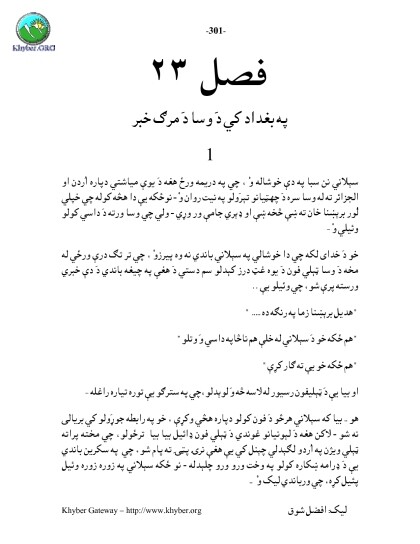 -301-
Khyber.ORG
فصل ۲۳
په بغداد کي دَ وسا دَ مرګ خبر
1
سېلاني نن سبا په دې خوشاله وُ ، چي په دريمه ورځ هغه دَ يوې مياشتي دپاره اُردن او
الجزائر ته له وسا سره دَ چهټيانو تېرولو په نيت روان وُ - نو ځکه يې دا هڅه کوله چي خپلي
لور برېښنا خان ته ښې څخه ښې او ډېري جامې ور وړي - ولي چي وسا ورته دَ داسي کولو
وئيلي وُ -
خو دَ خدای لکه چي دا خوشالي په سېلاني باندي نه وه پيرزوُ ، چي تر تګ درې ورځي له
مخه دَ وسا ټېلي فون دَ يوه غټ درز کېدلو سم دستي دَ هغې په چيغه باندي دَ دې خبري
ورسته پرې شو ، چي وئيلو يې ..
"هديل برېښنا زما په رنګه ده .... "
"هم ځکه خو دَ سېلاني له خلې هم ناڅاپه داسي وَ وتلو "
"هم ځکه خو يې ته ګار کړې"
او بيا يې دَ ټېليفون رسيور له لاسه څه وَ لوېدلو ،چي په سترګو يې توره تياره راغله -
هو - بيا که سېلاني هر څو دَ فون کولو دپاره هڅې وکړې ، خو په رابطه جوړولو کي بريالی
نه شو - لاکن هغه دَ ليونيانو غوندي دَ ټېلي فون ډائيل بيا بيا ترڅولو ، چي مخته پراته
ټېلي ويژن په اُردو لګېدلي چينل کي يې هغې ترۍ پټۍ ته پام شو ، چي په سکرين باندي
يې دَ ډرامه ښکاره کولو په وخت ورو ورو چلېدله - نو ځکه سېلاني په زوره زوره وئيل
پئيل کړه ، چي ورباندي ليک وُ -
Khyber Gateway – http://www.khyber.org
ليک: افضل شوق